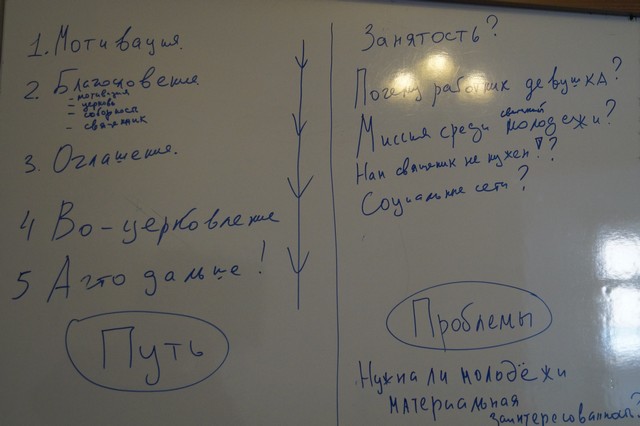 1. Мотивация.
2. Благословение
- мотивация
- церковь
- соборность
- священник
3. Оглашение.
4 Во-церковление
5 А что дальше!
Путь
Занятость?
Почему работник девушка?
Миссия среди молодежи?
Нам священик не нужен!?
Социальные сети?
Проблемы
Нужна ли молодёжи
материальная
заинтересованность?